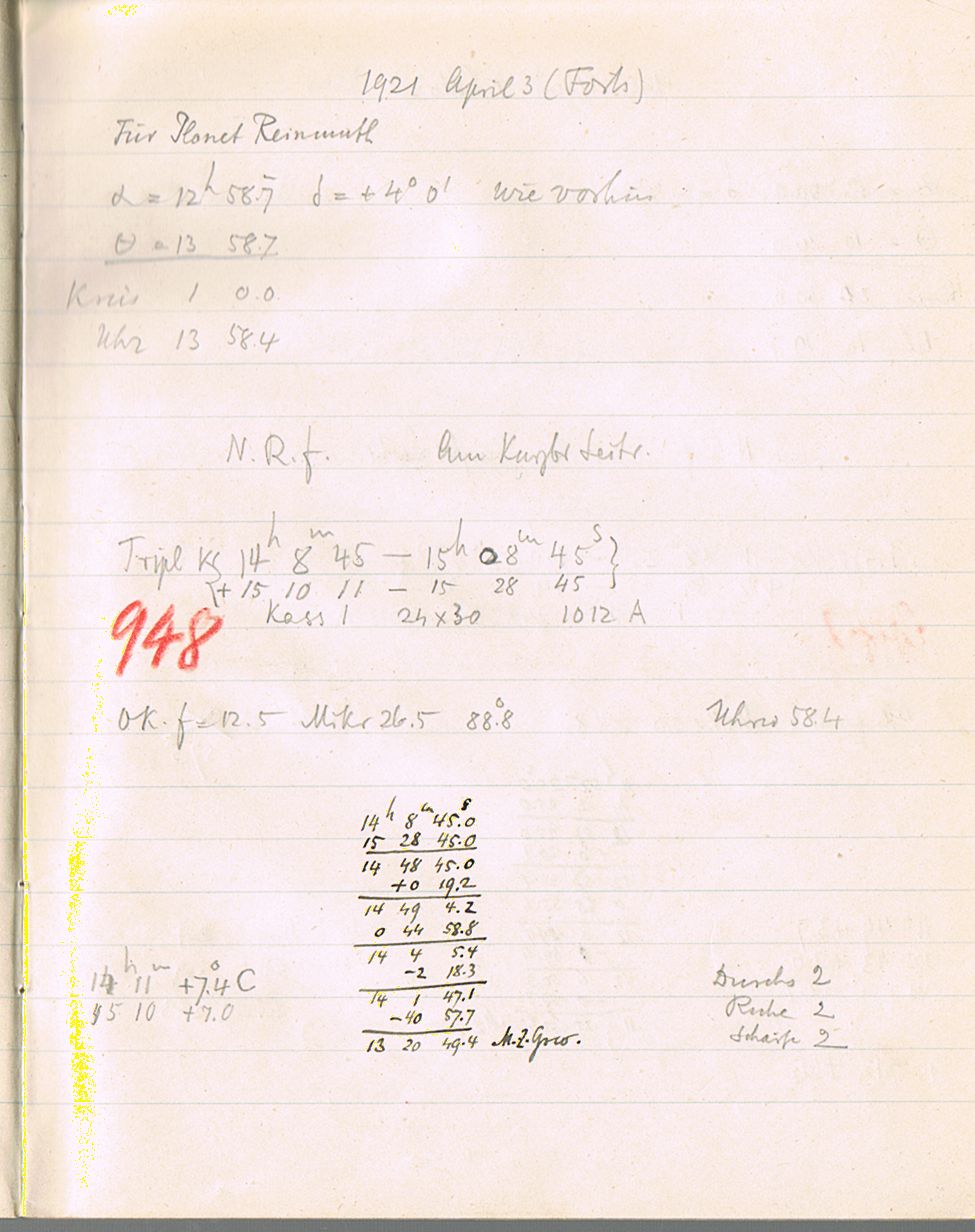 1921 April 3 (Forts)
Für Planet Reinmuth
α = 12h 58.7m δ = +4° 0' wie vorhin
θ = 13 58.7
Kreis 1 0.0
Uhr 13 58.4
N. R. f. Am
Tripl K { 14h 8m 45 — 15h 08m 45s }
{ + 15 10 11 — 15 28 45 }
Kass 1 24x30 1012 A
948
OK. f = 12.5 Mikr 26.5 88°.8 Uhr 58.4
14h 8m 45.0s
15 28 45.0
14 48 45.0
+0 19.2
14 49 4.2
0 44 58.8
14 4 5.4
-2 18.3
14 1 47.1
-40 57.7
13 20 49.4 M.Z.Grw.
14h 11m +7°.4 C
15 10 +7.0
Durchs 2
Ruhe 2
Schärfe 2